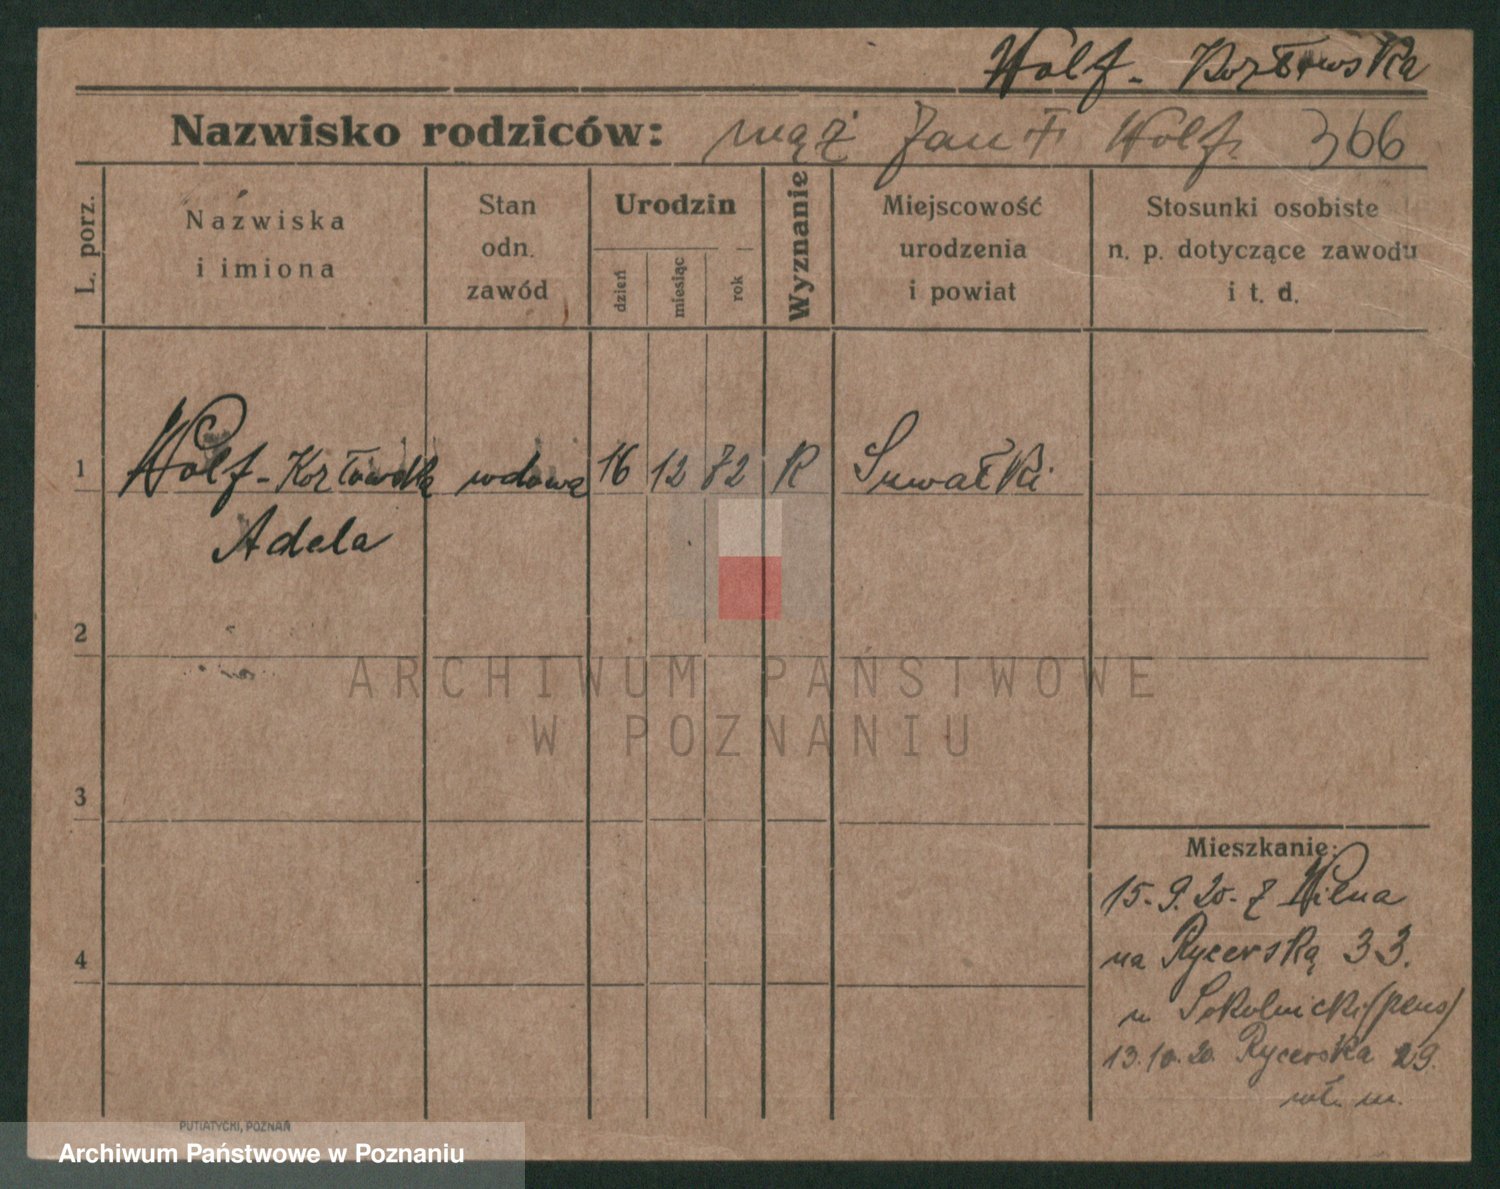 Wolf - Korłowska
Nazwisko rodziców: mąż Jan † Wolf. 366
L. porz.
Nazwiska
i imiona
Stan
odn.
zawód
Urodzin
dzień
miesiąc
rok
Wyznanie
Miejscowość
urodzenia
i powiat
Stosunki osobiste
n. p. dotyczące zawodu
i t. d.
1 Wolf - Korłowska wdowa 16 12 72 R Suwałki
Adela
2
ARCHIWUM PAŃSTWOWE
W POZNANIU
3
4
Mieszkanie:
15.9.20. z Wilna
na Rycerską 33.
u Sokolnicki (pens)
13.10.20. Rycerska 29.
wł. m.
PUTIATYCKI, POZNAŃ
Archiwum Państwowe w Poznaniu